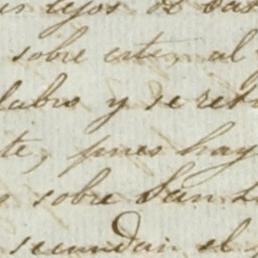 lejos de
sobre este, al
labio y se
te, pues hay
sobre San
secundan el